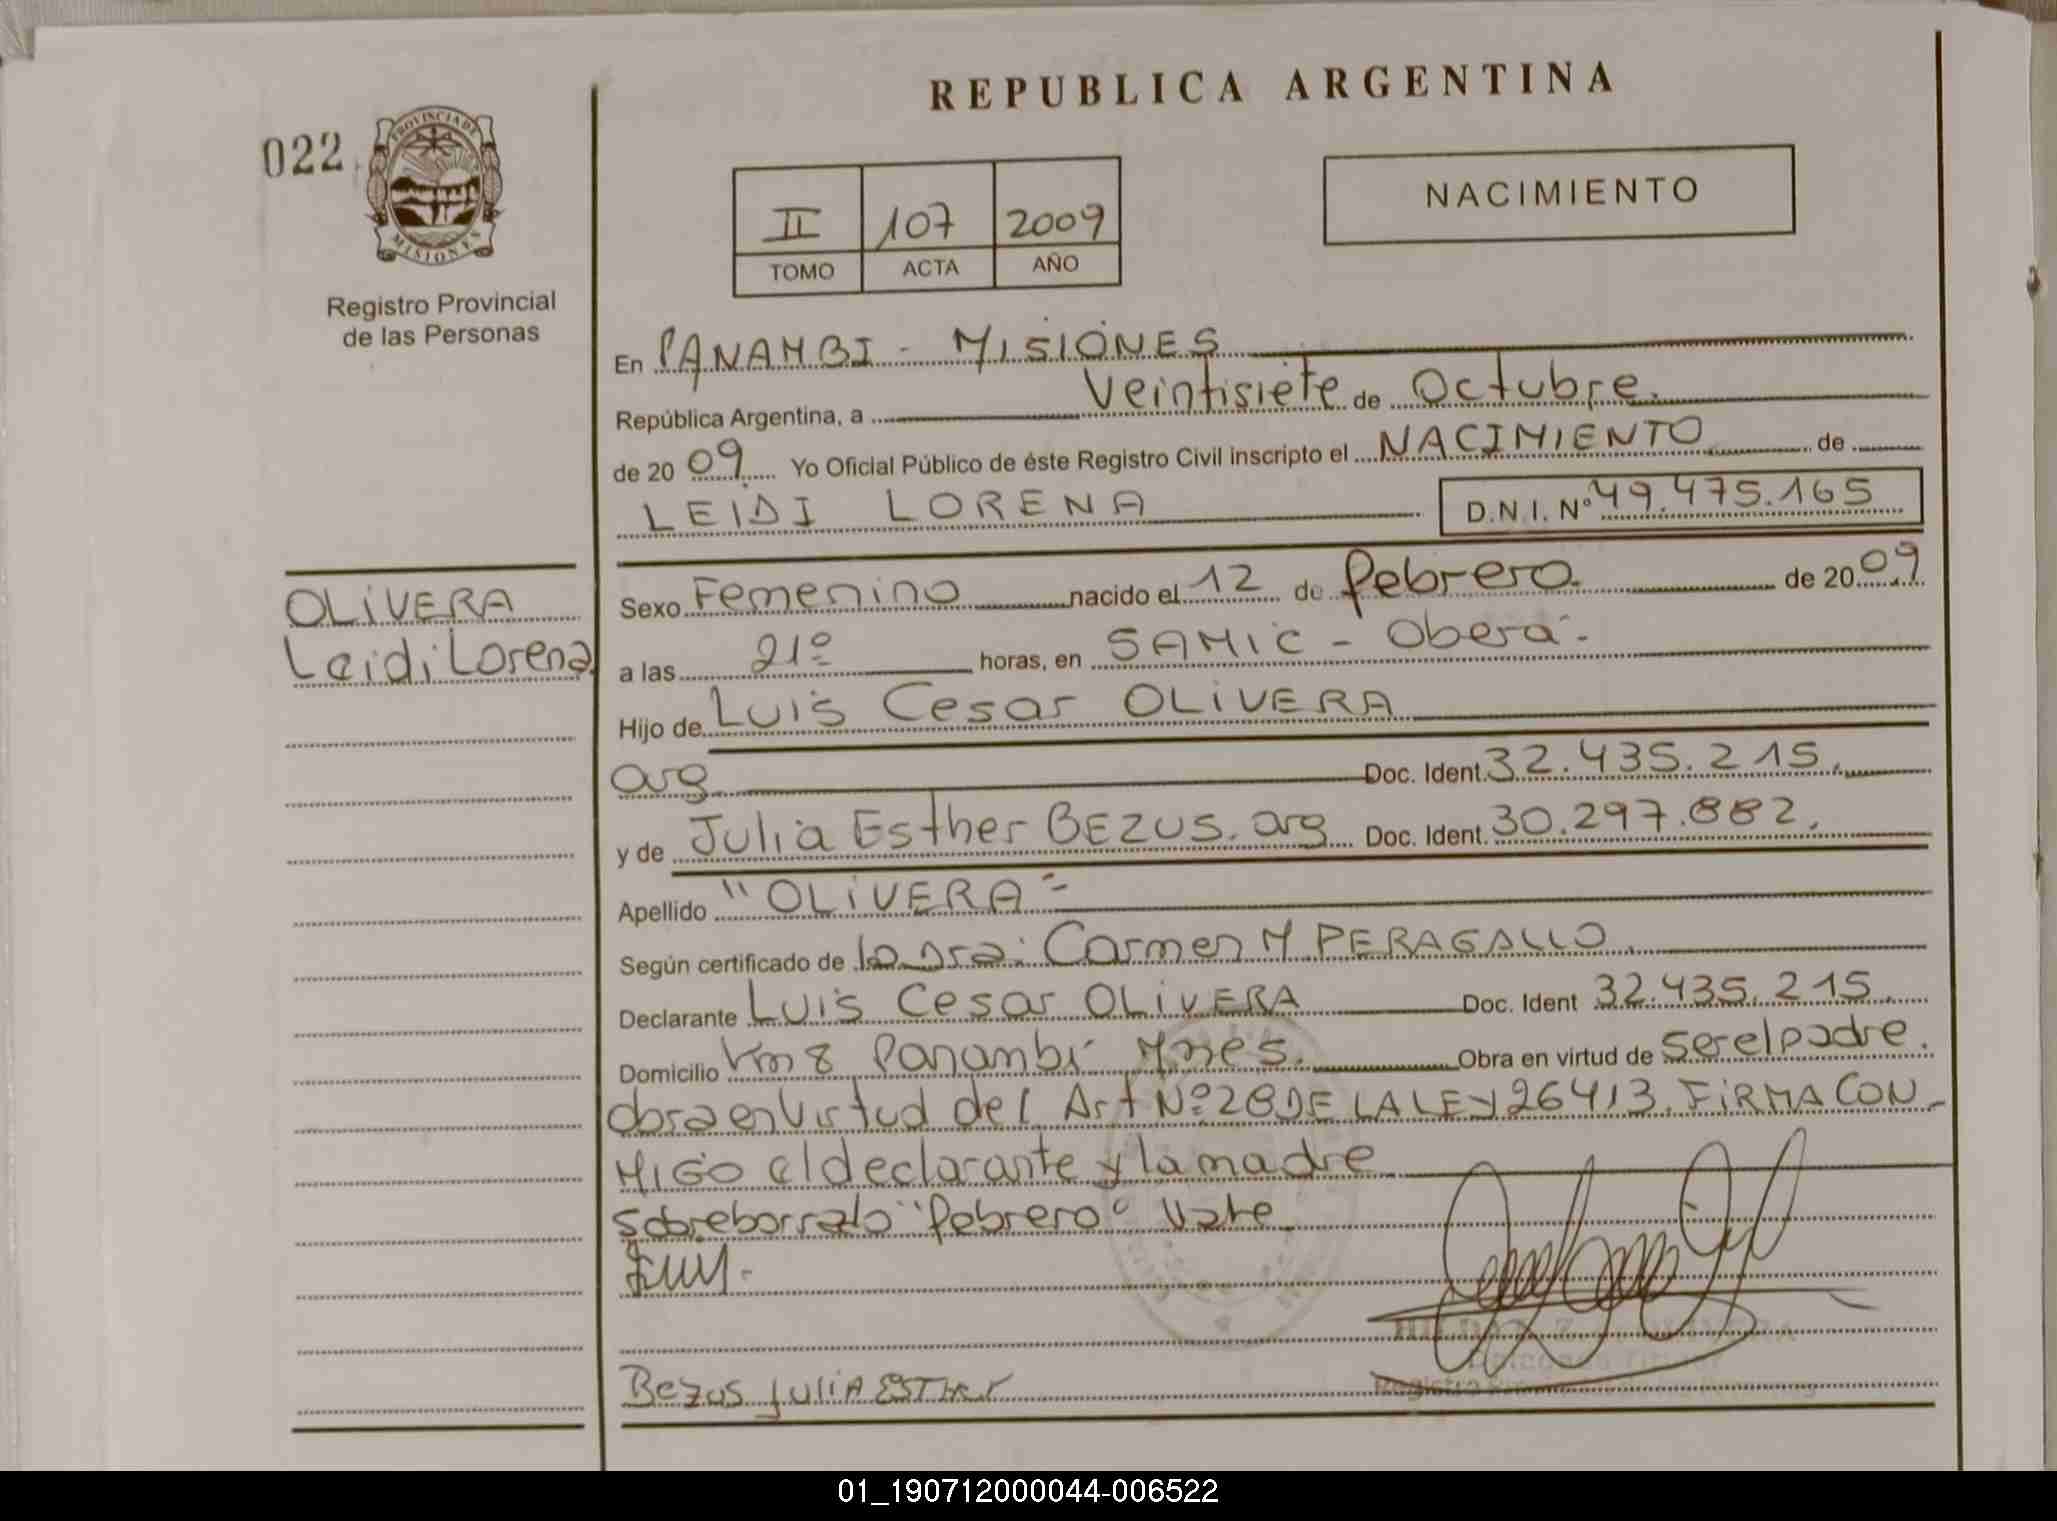 REPUBLICA ARGENTINA
022
PROVINCIA DE
MISIONES
Registro Provincial
de las Personas
II 107 2009
TOMO ACTA AÑO
NACIMIENTO
En PANAMBI - MISIONES
República Argentina, a Veintisiete de Octubre.
de 20 09 Yo Oficial Público de éste Registro Civil inscripto el NACIMIENTO de
LEIDI LORENA D.N.I. Nº 49.475.165
OLIVERA
Leidi Lorena
Sexo Femenino nacido el 12 de febrero. de 20 09
a las 21º horas, en SAMIC - Obera -
Hijo de Luis Cesar OLIVERA
arg Doc. Ident. 32.435.215.
y de Julia Esther BEZUS. arg Doc. Ident. 30.297.882.
Apellido "OLIVERA"
Según certificado de la Dra: Carmen M PERAGALLO.
Declarante Luis Cesar OLIVERA Doc. Ident 32.435.215.
Domicilio Km 8 Panambi Mnes. Obra en virtud de ser el padre.
obra en virtud del Art Nº 28 DE LA LEY 26413. FIRMA CON-
MIGO el declarante y la madre
sobreborrado "febrero" Vale.
Bezus JULIA ESTHER
01_190712000044-006522